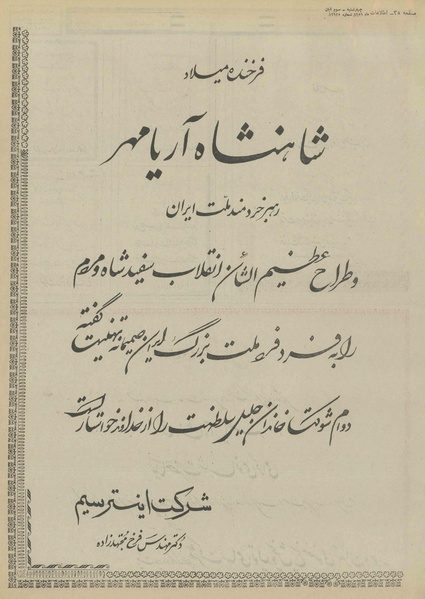 صفحه ۲۸ - اطلاعات
چهارشنبه - سوم آبان
فرخنده میلاد
شاهنشاه آریامهر
رهبر خردمند ملت ایران
و طراح عظیم الشأن انقلاب سفید شاه و مردم
را به فرد فرد ملت بزرگ ایران صمیمانه تهنیت گفته
دوام شوکت خاندان جلیل سلطنت را از خداوند خواستار است
شرکت اینترسیم
دکتر مهندس فرخ مجتهدزاده